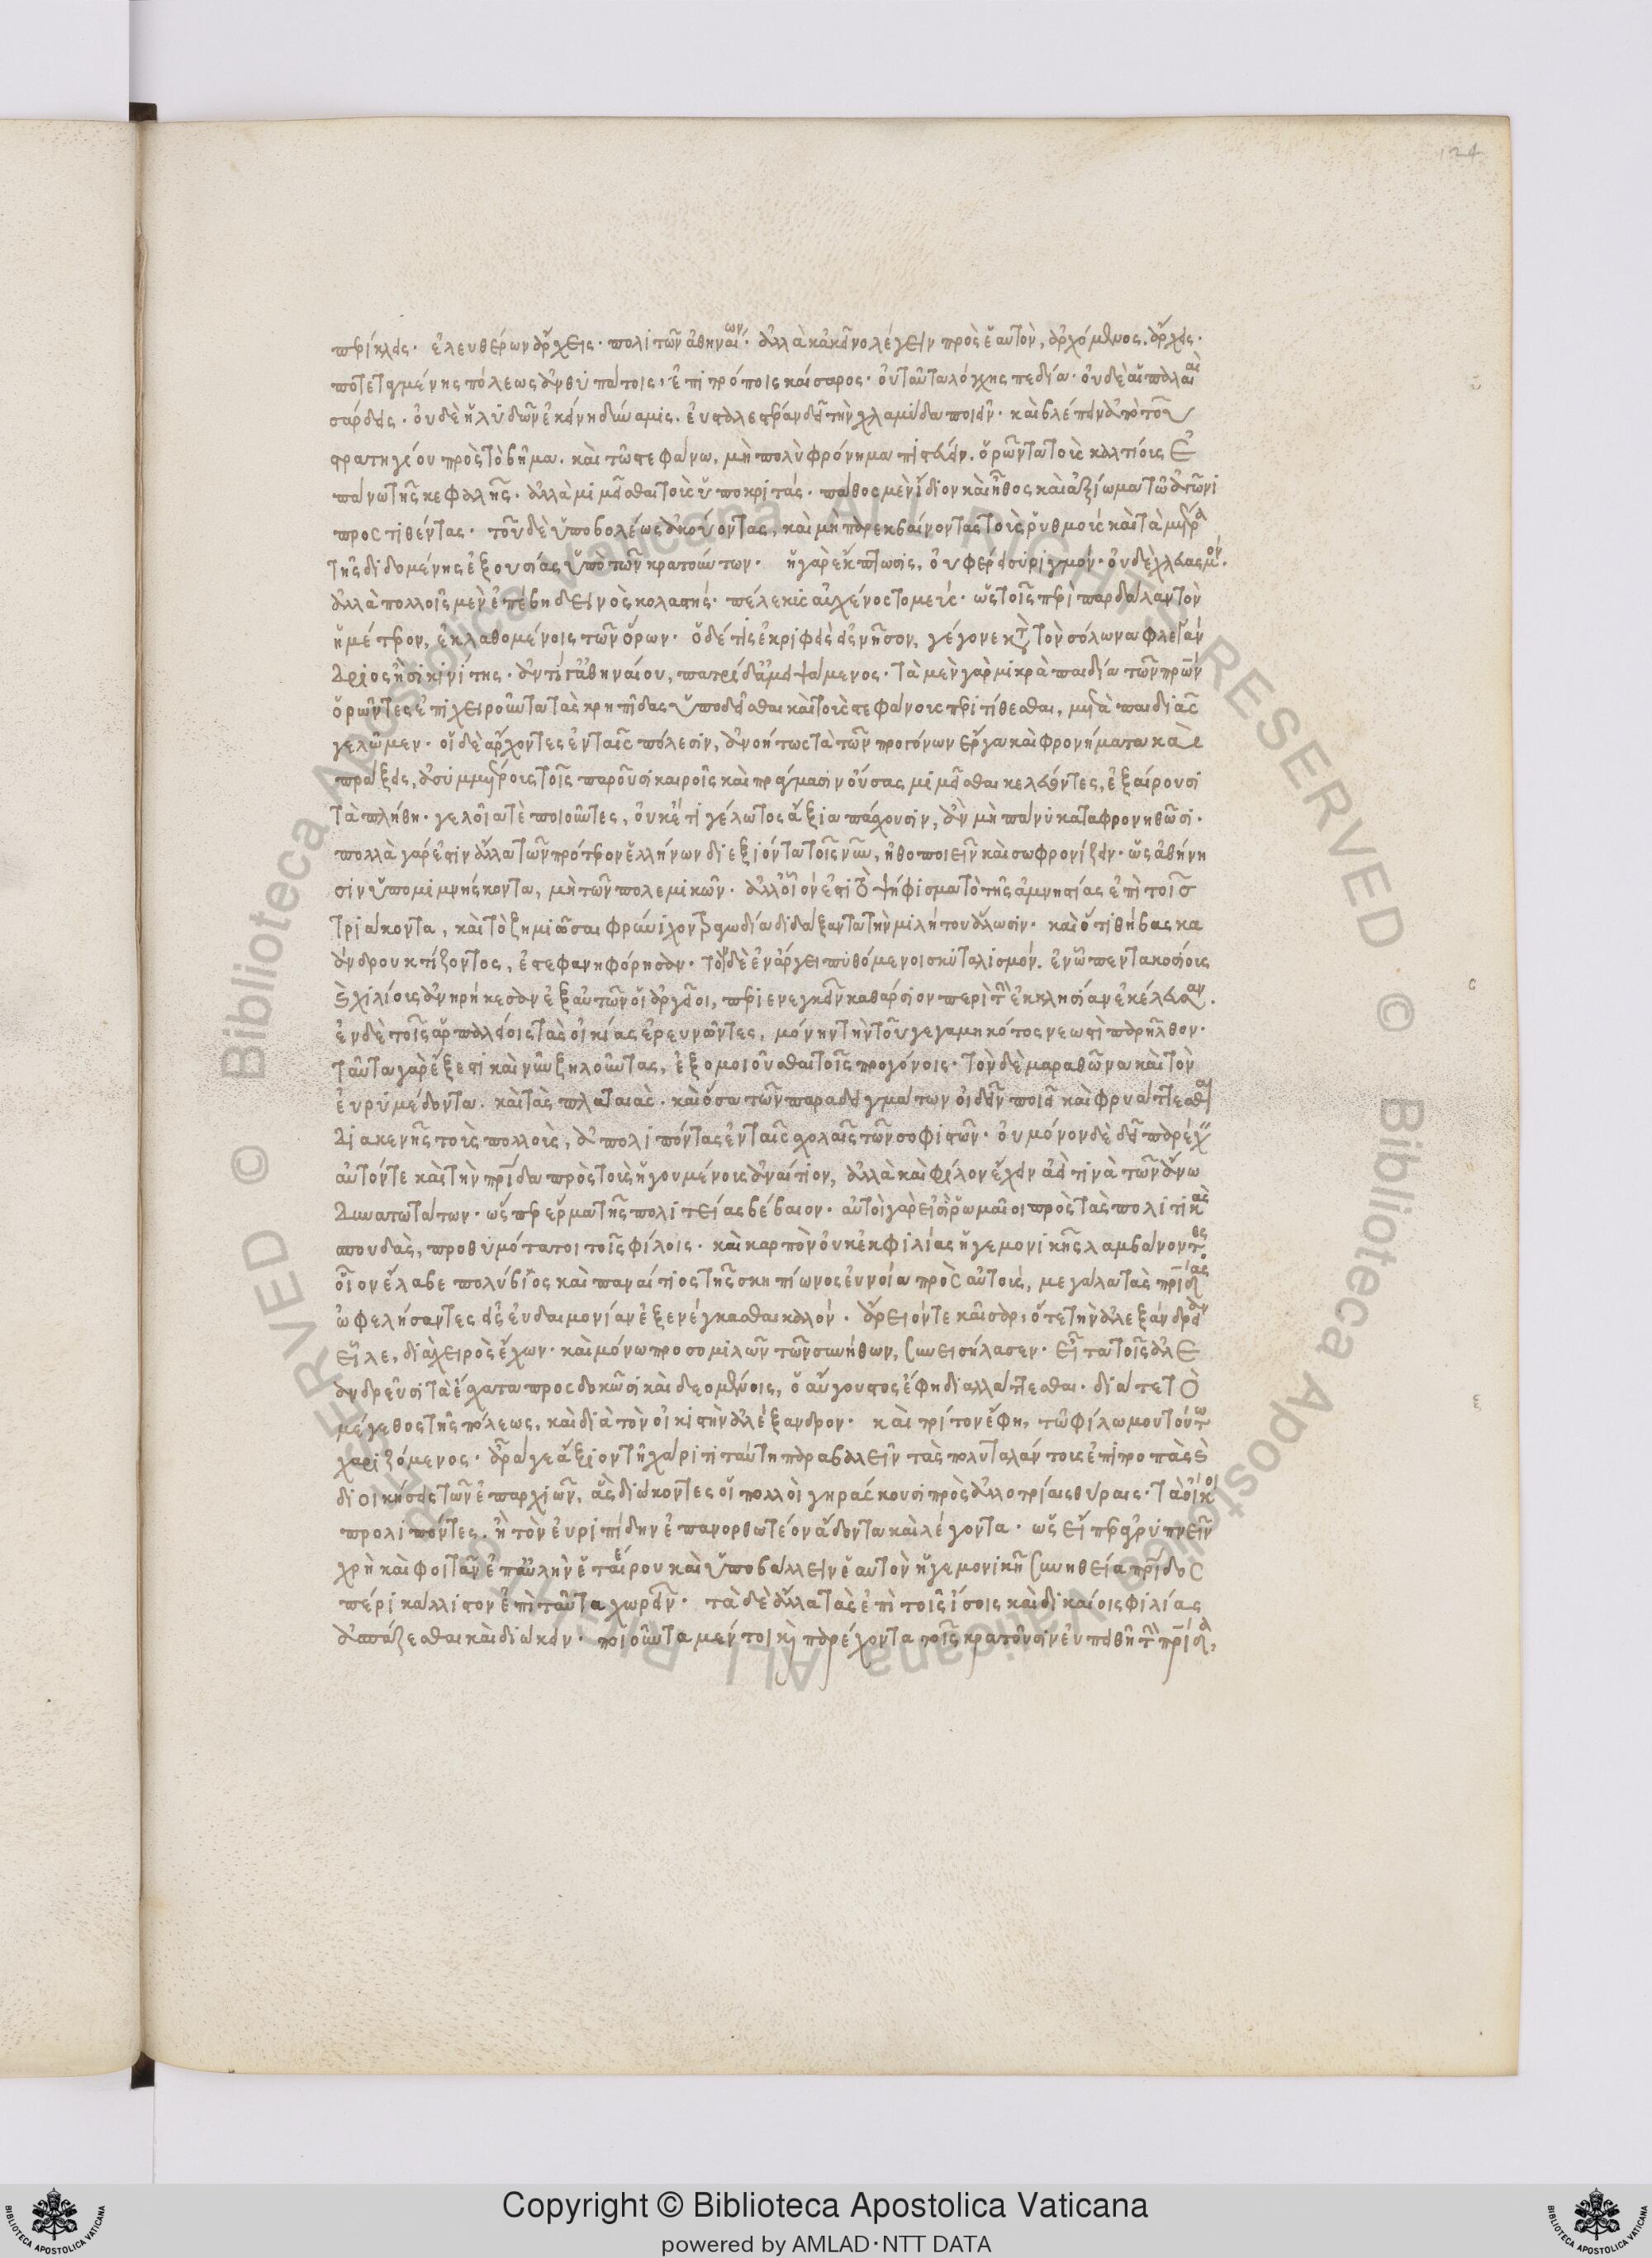 124
περίκλεις· ἐλευθέρων ἄρχεις· πολιτῶν ἀθηναίων· ἀλλὰ κἀκεῖνο λέγειν πρὸς ἑαυτὸν, ἀρχόμενος ἄρχεις·
ὑποτεταγμένης πόλεως ἀνθυπάτοις, ἐπιτρόποις καίσαρος· οὐ ταῦτα λόγχης πεδία· οὐδὲ αἱ παλαιαὶ
σάρδεις· οὐδὲ ἡ λυδῶν ἐκείνη δύναμις· εὐσταλεστέραν δεῖ τὴν χλαμύδα ποιεῖν· καὶ βλέπειν ἀπὸ τοῦ
στρατηγίου πρὸς τὸ βῆμα· καὶ τῷ στεφάνῳ, μὴ πολὺ φρόνημα πιστεύειν, ὁρῶντα τοὺς καλτίους ἐ
πάνω τῆς κεφαλῆς· ἀλλὰ μιμεῖσθαι τοὺς ὑποκριτάς· πάθος μὲν ἴδιον καὶ ἦθος καὶ ἀξίωμα τῷ ἀγῶνι
προστιθέντας· τοῦ δὲ ὑποβολέως ἀκούοντας, καὶ μὴ παρεκβαίνοντας τοὺς ῥυθμοὺς καὶ τὰ μέτρα
τῆς διδομένης ἐξουσίας ὑπὸ τῶν κρατούντων· ἡ γὰρ ἔκπτωσις, οὐ φέρει συριγμόν· οὐδὲ χλευασμόν·
ἀλλὰ πολλοῖς μὲν ἐπέβη δεινὸς κολαστής· πέλεκυς αὐχένος τομεύς· ὡς τοῖς περὶ παρδάλαν τὸν
ἡμέτερον, ἐκλαθομένοις τῶν ὅρων· ὁ δέ τις ἐκριφεὶς εἰς νῆσον, γέγονε κατὰ τὸν σόλωνα φλεγάν
δριος ἢ σικινίτης· ἀντί γ' ἀθηναίου, πατρίδ' ἀμειψάμενος· τὰ μὲν γὰρ μικρὰ παιδία τῶν πατέρων
ὁρῶντες ἐπιχειροῦντα τὰς κρηπῖδας ὑποδεῖσθαι καὶ τοὺς στεφάνους περιτίθεσθαι, μετὰ παιδιᾶς
γελῶμεν· οἱ δὲ ἄρχοντες ἐν ταῖς πόλεσιν, ἀνοήτως τὰ τῶν προγόνων ἔργα καὶ φρονήματα καὶ
πράξεις, ἀσυμμέτρους τοῖς παροῦσι καιροῖς καὶ πράγμασιν οὔσας μιμεῖσθαι κελεύοντες, ἐξαίρουσι
τὰ πλήθη· γελοῖα τὲ ποιοῦντες, οὐκέτι γέλωτος ἄξια πάσχουσιν, ἂν μὴ πάνυ καταφρονηθῶσι·
πολλὰ γάρ ἐστιν ἄλλα τῶν πρότερον ἑλλήνων διεξιόντα τοῖς νῦν, ἠθοποιεῖν καὶ σωφρονίζειν· ὡς ἀθήνη
σιν ὑπομιμνήσκοντα, μὴ τῶν πολεμικῶν· ἀλλ' οἷόν ἐστι τὸ ψήφισμα τὸ τῆς ἀμνηστίας ἐπὶ τοῖς
τριάκοντα, καὶ τὸ ζημιῶσαι φρύνιχον τραγῳδία διδάξαντα τὴν μιλήτου ἅλωσιν· καὶ ὅτι θήβας κα
σάνδρου κτίζοντος, ἐστεφανηφόρησαν· τὸν δὲ ἐν ἄργει πυθόμενοι σκυταλισμόν, ἐν ᾧ πεντακοσίους
καὶ χιλίους ἀνῃρήκεσαν ἐξ αὐτῶν οἱ ἀργεῖοι, περιενεγκεῖν καθάρσιον περὶ τὴν ἐκκλησίαν ἐκέλευσαν·
ἐν δὲ τοῖς ἁρπαλείοις τὰς οἰκίας ἐρευνῶντες, μόνην τὴν τοῦ γεγαμηκότος νεωστὶ παρῆλθον·
ταῦτα γὰρ ἔξεστι καὶ νῦν ζηλοῦντας, ἐξομοιοῦσθαι τοῖς προγόνοις· τὸν δὲ μαραθῶνα καὶ τὸν
εὐρυμέδοντα· καὶ τὰς πλαταιὰς· καὶ ὅσα τῶν παραδειγμάτων οἰδεῖν ποιεῖ καὶ φρυάττεσθαι
διακενῆς τοὺς πολλοὺς, ἀπολιπόντας ἐν ταῖς σχολαῖς τῶν σοφιστῶν· οὐ μόνον δὲ δεῖ παρέχειν
αὐτόν τε καὶ τὴν πατρίδα πρὸς τοὺς ἡγουμένους ἀναίτιον, ἀλλὰ καὶ φίλον ἔχειν ἀεὶ τινὰ τῶν ἄνω
δυνατωτάτων· ὥσπερ ἕρμα τῆς πολιτείας βέβαιον· αὐτοὶ γὰρ εἰσὶ ῥωμαῖοι πρὸς τὰς πολιτικὰς
σπουδὰς, προθυμότατοι τοῖς φίλοις· καὶ καρπὸν οὐκ ἐκ φιλίας ἡγεμονικῆς λαμβάνοντες·
οἷον ἔλαβε πολύβιος καὶ παναίτιος τῆς σκηπίωνος εὐνοία πρὸς αὐτοὺς, μεγάλα τὰς πατρίδας
ὠφελήσαντες εἰς εὐδαιμονίαν ἐξενέγκασθαι καλόν· ἄρειόν τε καῖσαρ, ὅτε τὴν ἀλεξάνδρειαν
εἷλε, διὰ χειρὸς ἔχων· καὶ μόνῳ προσομιλῶν τῶν συνήθων, συνεισήλασεν· εἶτα τοῖς ἀλε
ξανδρεῦσι τὰ ἔσχατα προσδοκῶσι καὶ δεομένοις, ὁ αὔγουστος ἔφη διαλλάττεσθαι· διά τε τὸ
μέγεθος τῆς πόλεως, καὶ διὰ τὸν οἰκιστὴν ἀλέξανδρον· καὶ τρίτον ἔφη, τῷ φίλῳ μου τούτῳ
χαριζόμενος· ἆρά γε ἄξιον τῇ χάριτι ταύτῃ παραβαλεῖν τὰς πολυταλάντους ἐπιτροπὰς καὶ
διοικήσεις τῶν ἐπαρχιῶν, ἃς διώκοντες οἱ πολλοὶ γηράσκουσι πρὸς ἀλλοτρίαις θύραις· τὰ οἴκοι
προλιπόντες· ἢ τὸν εὐριπίδην ἐπανορθωτέον ᾄδοντα καὶ λέγοντα· ὡς εἴπερ ἀγρυπνεῖν
χρὴ καὶ φοιτᾶν ἐπ' αὐλὴν ἑταίρου καὶ ὑποβάλλειν ἑαυτὸν ἡγεμονικῇ συνηθεία πατρίδος
πέρι κάλλιστον ἐπὶ ταῦτα χωρεῖν· τὰ δὲ ἄλλα τὰς ἐπὶ τοῖς ἴσοις καὶ δικαίοις φιλίας
ἀσπάζεσθαι καὶ διώκειν· ποιοῦντα μέντοι καὶ παρέχοντα τοῖς κρατοῦσιν εὐπειθῆ τὴν πατρίδα,
Copyright © Biblioteca Apostolica Vaticana
powered by AMLAD·NTT DATA